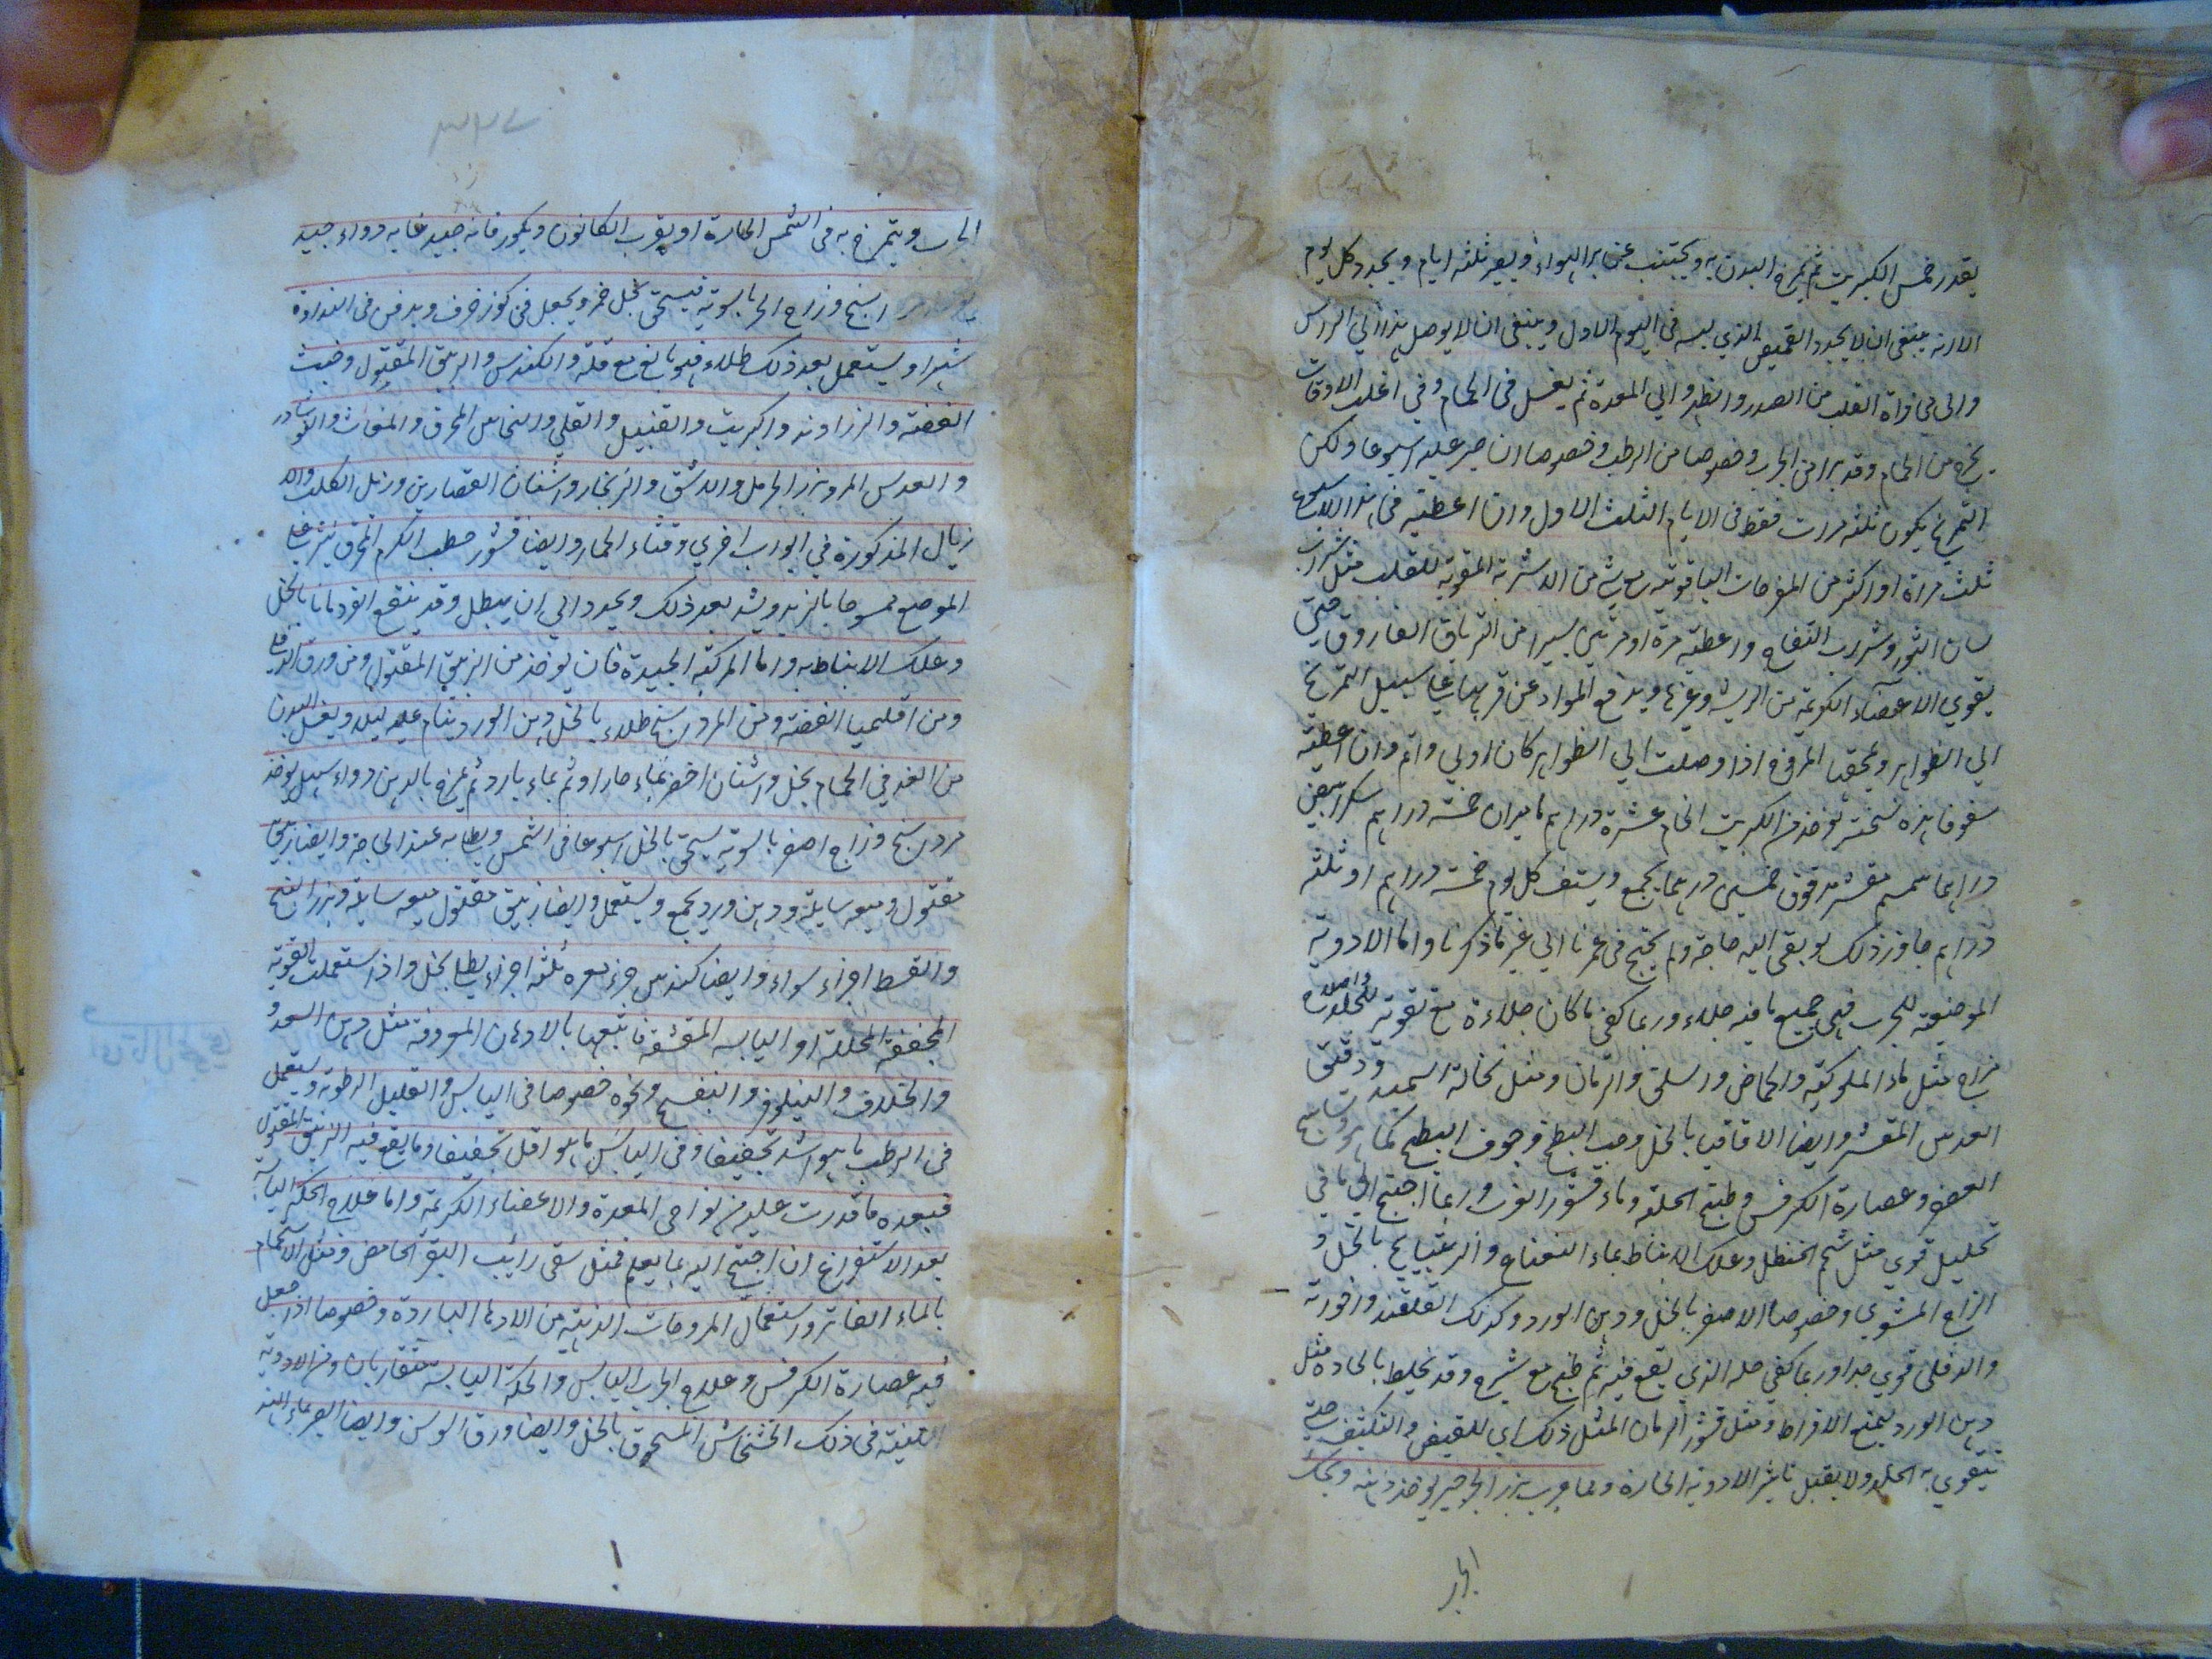 بقدر خمس الكبريت ثم يمرخ البدن به ويجتنب عن برد الهواء ويصبر ثلثه ايام ويجدد كل يوم
الا انه ينبغي ان لا يجدد القميص الذي لبسه في اليوم الاول وينبغي ان لا يوصل هذا الي الراس
والي محاذاة القلب من الصدر والظهر والي المعدة ثم يغسل في الحمام وفي اغلب الاوقات
يخرج من الحمام وقد برا من الجرب وخصوصا من الرطب وخصوصا ان صبر عليه اسبوعا ولكن
التمريخ يكون ثلثه مرات فقط في الايام الثلث الاول وان اعطيته في هذا الاسبوع
ثلث مراة او اكثر من المفرحات الياقوتيه مع شي من الاشربة المقوية للقلب مثل شراب
لسان الثور وشراب التفاح واعطيته مرة او مرتين يسيرا من الترياق الفاروق حتي
يقوي الاعضاء الكريمة من الريئسه وغيرها ويدفع المواد عن قربها علي سبيل التمريخ
الي الظواهر ويلحقها المروخ اذا وصلت الي الظواهر كان اولي واتم وان اعطيته
سفوفا هذه نسخته يوخذ من الكبريت الخام عشرة دراهم ماميران خمسة دراهم سكر ابيض
دراهما سمسم مقشر مدقوق خمسين درهما يجمع ويستف كل يوم خمسة دراهم او ثلثه
دراهم جاوز ذلك لو بقي اليه حاجه ولم يحتج في عمرنا الي غير ما ذكرنا واما الادوية
الموضعية للجرب فهي جميع ما فيه جلاء وربما كفي ما كان جلاءه مع تقوية للجلد واصلاح
مزاج مثل ماء الملوكيه والحماض والسلق والرمان ومثل نخالة السميد ودقيق
العدس المقشر وايضا الاقاقيا بالخل وحب البطيخ وجوف البطيخ كما هو
العصفر وعصارة الكرفس وطبيخ الحلبه وماء قشور وربما احتيج الي ما في
تحليل قوي مثل شحم الحنظل وعلك الانباط بماء النعناع والريتيانج بالخل و
الزاج المشوي وخصوصا الاصفر بالخل ودهن الورد وكذلك القلقند واخواته
والدفلي قوي جدا وربما كفي خله الذي يقع فيه ثم طبخ مع شيرج وقد يخلط بالحادة مثل
دهن الورد ليمنع الافراط ومثل قشور الرمان المثل ذلك اي للقبض والتكثيف حتي
يتقوي به الجلد ولا يقبل تاثير الادوية الحارة ومما جرب بزر الجرجير يوخذ دهنه ويحك
الجر
الجرب ويتمرخ به في الشمس الحارة او بقرب الكانون ويكرر فانه جيد غايه دواء جيد
اسنج وزاج الحر بالسوية فيسحق بخل خمر ويجعل في كوز خزف ويدفن في النداوة
شهرا ويستعمل بعد ذلك طلاء فهو نافع مع قلة والكندس والزيبق المقتول وخبث
الفضة والزراوند والكبريت والقنبيل والقلي والنحاس المحرق والمغاث والنوشادر
والعدس المر وبزر الحرمل والاشق والزنجار واشنان القصارين وزبل الكلب والا
زبال المذكورة في ابواب اخري وقثاء الحمار وايضا قشور حطب الكرم المحرق ينثر علي
الموضع ممسوحا بالزيد ويشد بعد ذلك ويجدد الي ان يبطل وقد ينتفع القردمانا بالخل
وعلك الانباط به واما المركبه الجيدة فان يوخذ من الزيبق المقتول ومن ورق الدفلي
ومن اقليميا الفضة ومن المرداسنج طلاء بالخل ودهن الورد ينام عليه ليلا ويغسل البدن
من الغد في الحمام بخل واشنان اخضر بماء حارا وثم بماء بارد ثم يمرخ بالدهن دواء سهل يوخذ
مرداسنج وزاج اصفر بالسوية يسحق بالخل اسبوعا في الشمس ويطلي به عند الحاجه وايضا زيبق
مقتول وميعه سايلة ودهن ورد يجمع ويستعمل وايضا زيبق مقتول ميعه سايلة وبزر البنج
والقسط اجزاء سواء وايضا كندس جزء مغره ثلثه اجزاء يطلي بخل واذا استعملت القوية
المجففة المحللة او اليابسه المقشفة فاتبعها بالادهان المعروفة مثل دهن السعد و
والخلاف والنيلوفر والبنفسج ونحوه خصوصا في اليابس والقليل الرطوبة ويستعمل
في الرطب ما هو اشد تجفيفا وفي اليابس ما هو اقل تجفيفا وما يقع فيه الزيبق المقتول
فبعده ما قدرت عليه من نواحي المعدة والاعضاء الكريمة واما علاج الحكة اليابسة
بعد الاستفراغ ان احتيج اليه بما يعلم فمثل سقي رائب البقر الحامض ومثل الاستحمام
بالماء الفاتر واستعمال المروخات الدهنيه من الادهان الباردة وخصوصا اذا جعل
فيه عصارة الكرفس وعلاج الجرب اليابس والحكة اليابسة متقاربان ومن الادوية
النقيه في ذلك الخشخاش المسحوق بالخل وايضا ورق السوسن وايضا الصبر بماء الهند